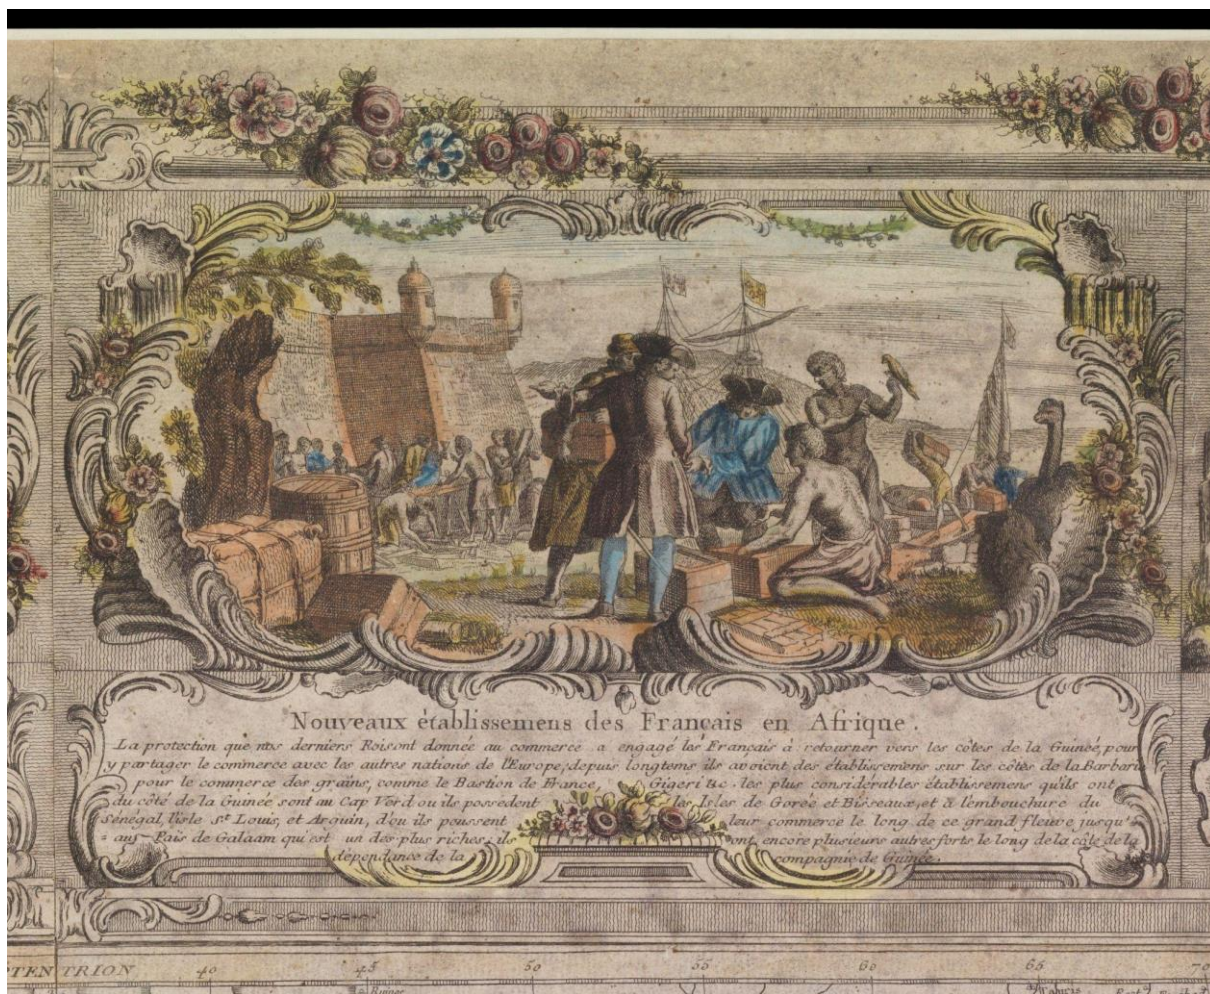 Nouveaux établissemens des Français en Afrique.
La protection que nos derniers Rois ont donnée au commerce a engagé les Français à retourner vers les côtes de la Guinée, pour
y partager le commerce avec les autres nations de l'Europe, depuis longtems ils avoient des établissemens sur les côtes de la Barbarie
pour le commerce des grains, comme le Bastion de France, Gigeri &c. les plus considérables établissemens qu'ils ont
du côté de la Guinée sont au Cap Verd ou ils possedent les Isles de Goreé et Bisseaux, et à l'embouchure du
Sénégal, l'isle St. Louis, et Arguin, d'ou ils poussent leur commerce le long de ce grand fleuve jusqu'
= aux Païs de Galaam qui est un des plus riches; ils ont encore plusieurs autres forts le long de la côte de la
dépendance de la compagnie de Guinée.
TENTRION 40 45 50 55 60 65 70